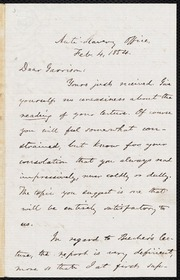 Anti-Slavery Office,
Feb. 4, 1854.
Dear Garrison:
Yours just received. Give
yourself no uneasiness about the
reading of your lecture. Of course
you will feel somewhat con-
strained, but know for your
consolation that you always read
impressively, never coldly or dully.
The topic you suggest is one that
will be entirely satisfactory to
us.
In regard to Lec-
ture, the report is very deficient,
more so than I at first sup-